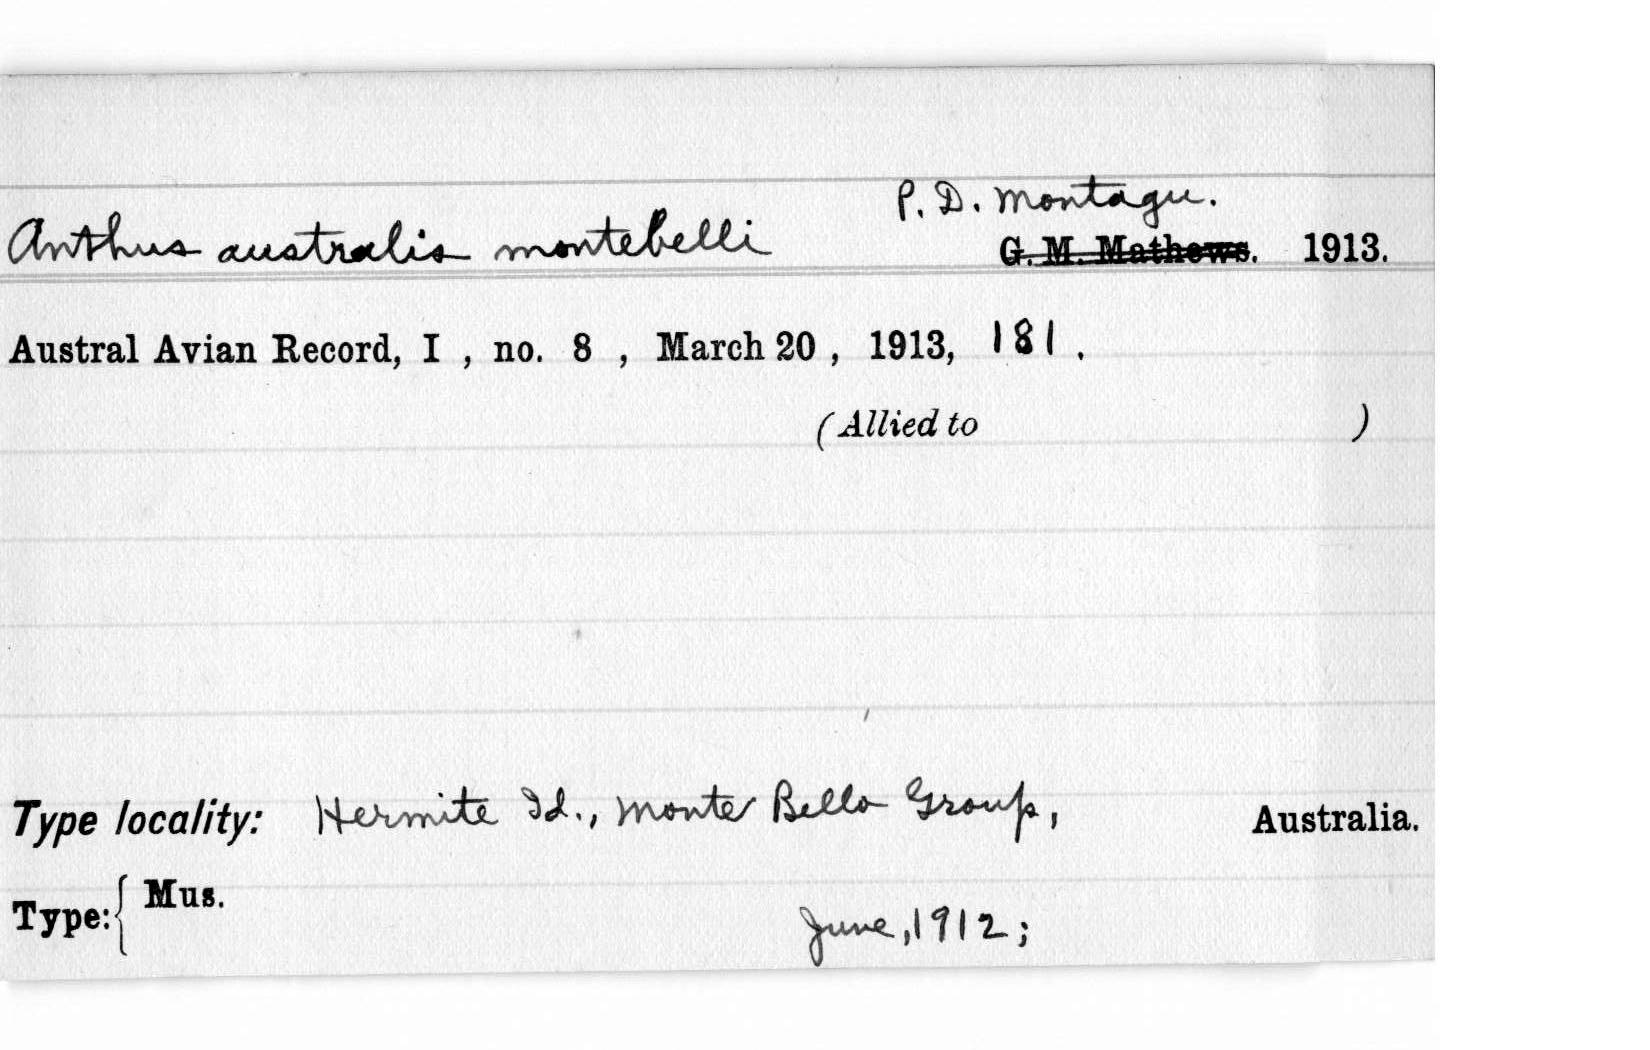 P. D. Montagu.
Anthus australis montebelli G. M. Mathews. 1913.
Austral Avian Record, I , no. 8 , March 20 , 1913, 181 .
(Allied to )
Type locality: Hermite Id., Monte Bello Group, Australia.
Type: { Mus.
June, 1912;